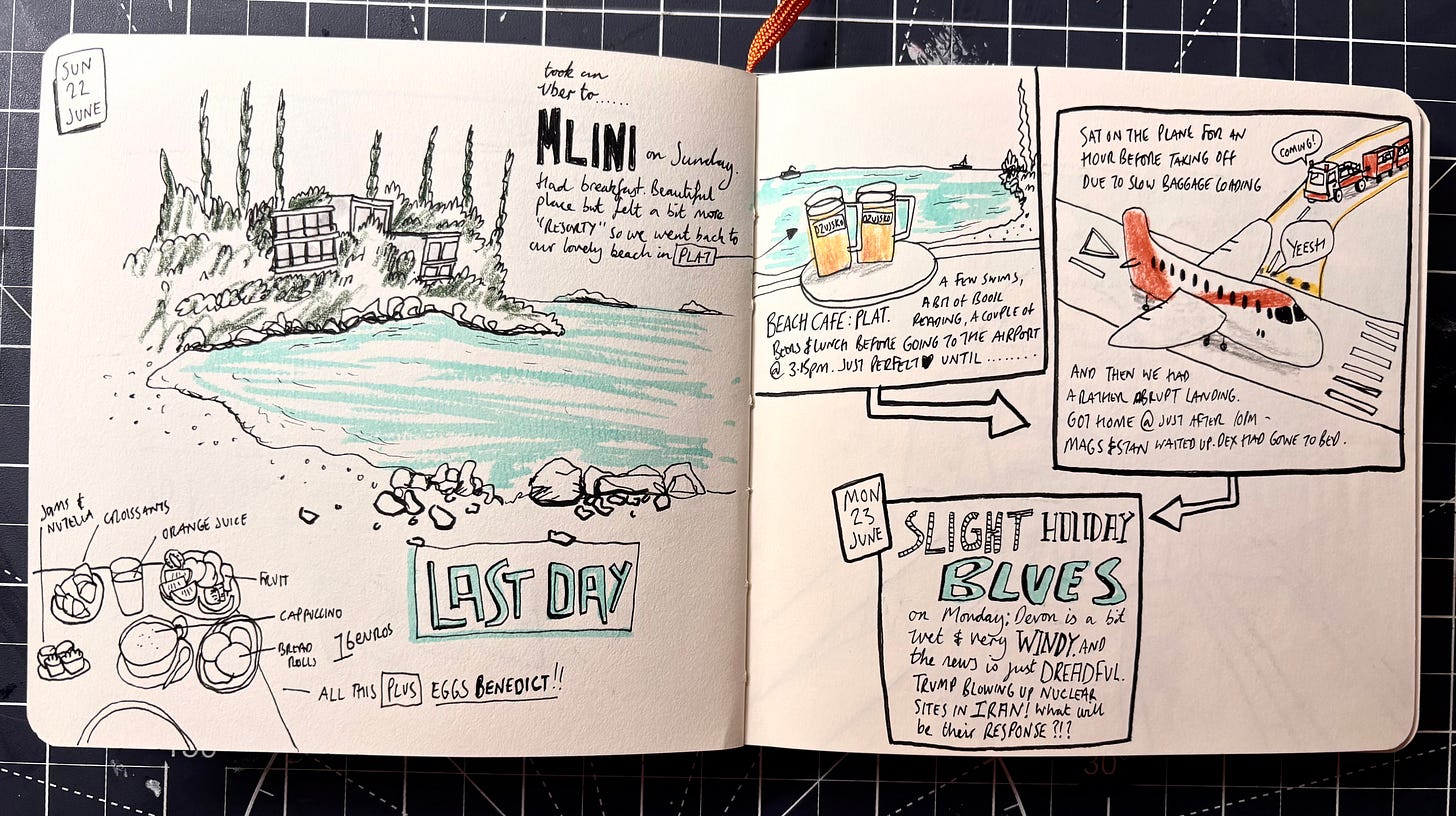 SUN
22
JUNE
took an
Uber to......
MLINI on Sunday.
Had breakfast. Beautiful
place but felt a bit more
"RESORTY" so we went back to
our lovely beach in PLAT
Jams &
NUTELLA
CROISSANTS
ORANGE JUICE
FRUIT
CAPPUCCINO
BREAD
ROLLS
16 euros
ALL THIS PLUS EGGS BENEDICT!!
LAST DAY
OZUJSKO
OZUJSKO
A FEW SWIMS,
A BIT OF BOOK
BEACH CAFE: PLAT. READING, A COUPLE OF
BEERS & LUNCH BEFORE GOING TO THE AIRPORT
@ 3.15PM. JUST PERFECT♥ UNTIL ........
SAT ON THE PLANE FOR AN
HOUR BEFORE TAKING OFF
DUE TO SLOW BAGGAGE LOADING
COMING!
YEESH
AND THEN WE HAD
A RATHER ABRUPT LANDING.
GOT HOME @ JUST AFTER 10PM -
MAGS & STAN WAITED UP. DEX HAD GONE TO BED.
MON
23
JUNE
SLIGHT HOLIDAY
BLUES
on Monday; Devon is a bit
wet & very WINDY. AND
the news is just DREADFUL.
TRUMP BLOWING UP NUCLEAR
SITES IN IRAN! What will
be their RESPONSE?!?